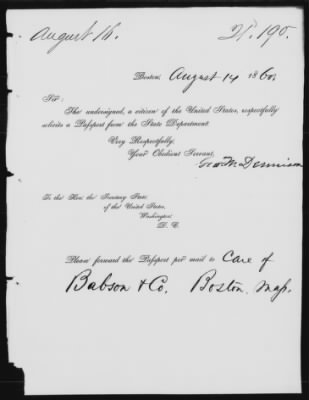 August 16. 21.190.
Boston, August 14 1860.
Sir:
The undersigned, a citizen of the United States, respectfully
solicits a Passport from the State Department
Very Respectfully,
Your Obedient Servant,
Geo M Dennison
To the Hon. the Secretary State
of the United States,
Washington
D. C.
Please forward the Passport per mail to Care of
Babson & Co. Boston. Mass.